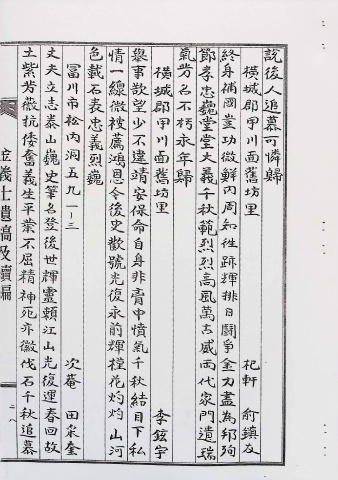 說後人追慕可憐歸
橫城郡甲川面舊坊里　杞軒　兪鎭友
終身補國業功微鮮內周知性跡輝排日鬪爭金力盡為邦殉
節孝忠巍堂堂大義千秋範烈烈高風萬古威兩代家門遺瑞
氣芳名不朽永年歸
橫城郡甲川面舊坊里　李鉉宇
擧事欲望少不違靖安保命自身非胷中憤氣千秋結目下私
情一線微被薦鴻恩令後史歡號光復永前輝槿花灼灼山河
色載石表忠義烈巍
富川市松內洞五九一–三　次菴　田采奎
丈夫立志泰山巍史筆名登後世輝靈賴江山光復運春回故
土紫芳徽抗倭奮義生平業不屈精神死亦徽伐石千秋追慕
金義士遺稿及續編
二八